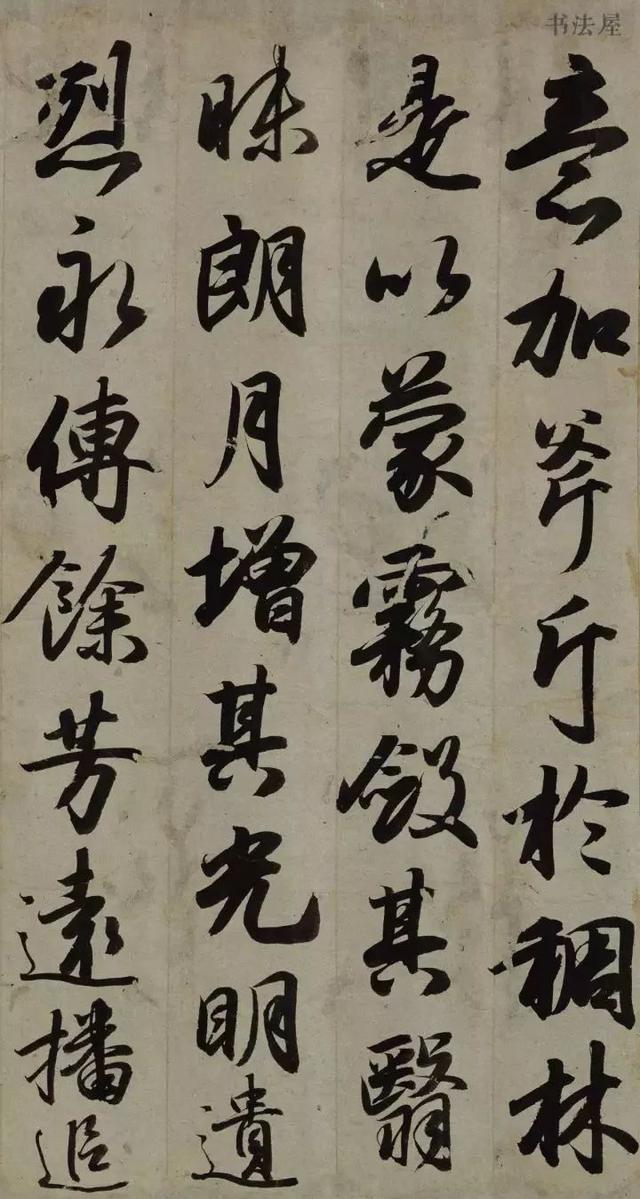 意加斧斤於稠林
是以蒙霧斂其翳
昧朗月增其光明遺
烈永傳餘芳遠播追
书法屋